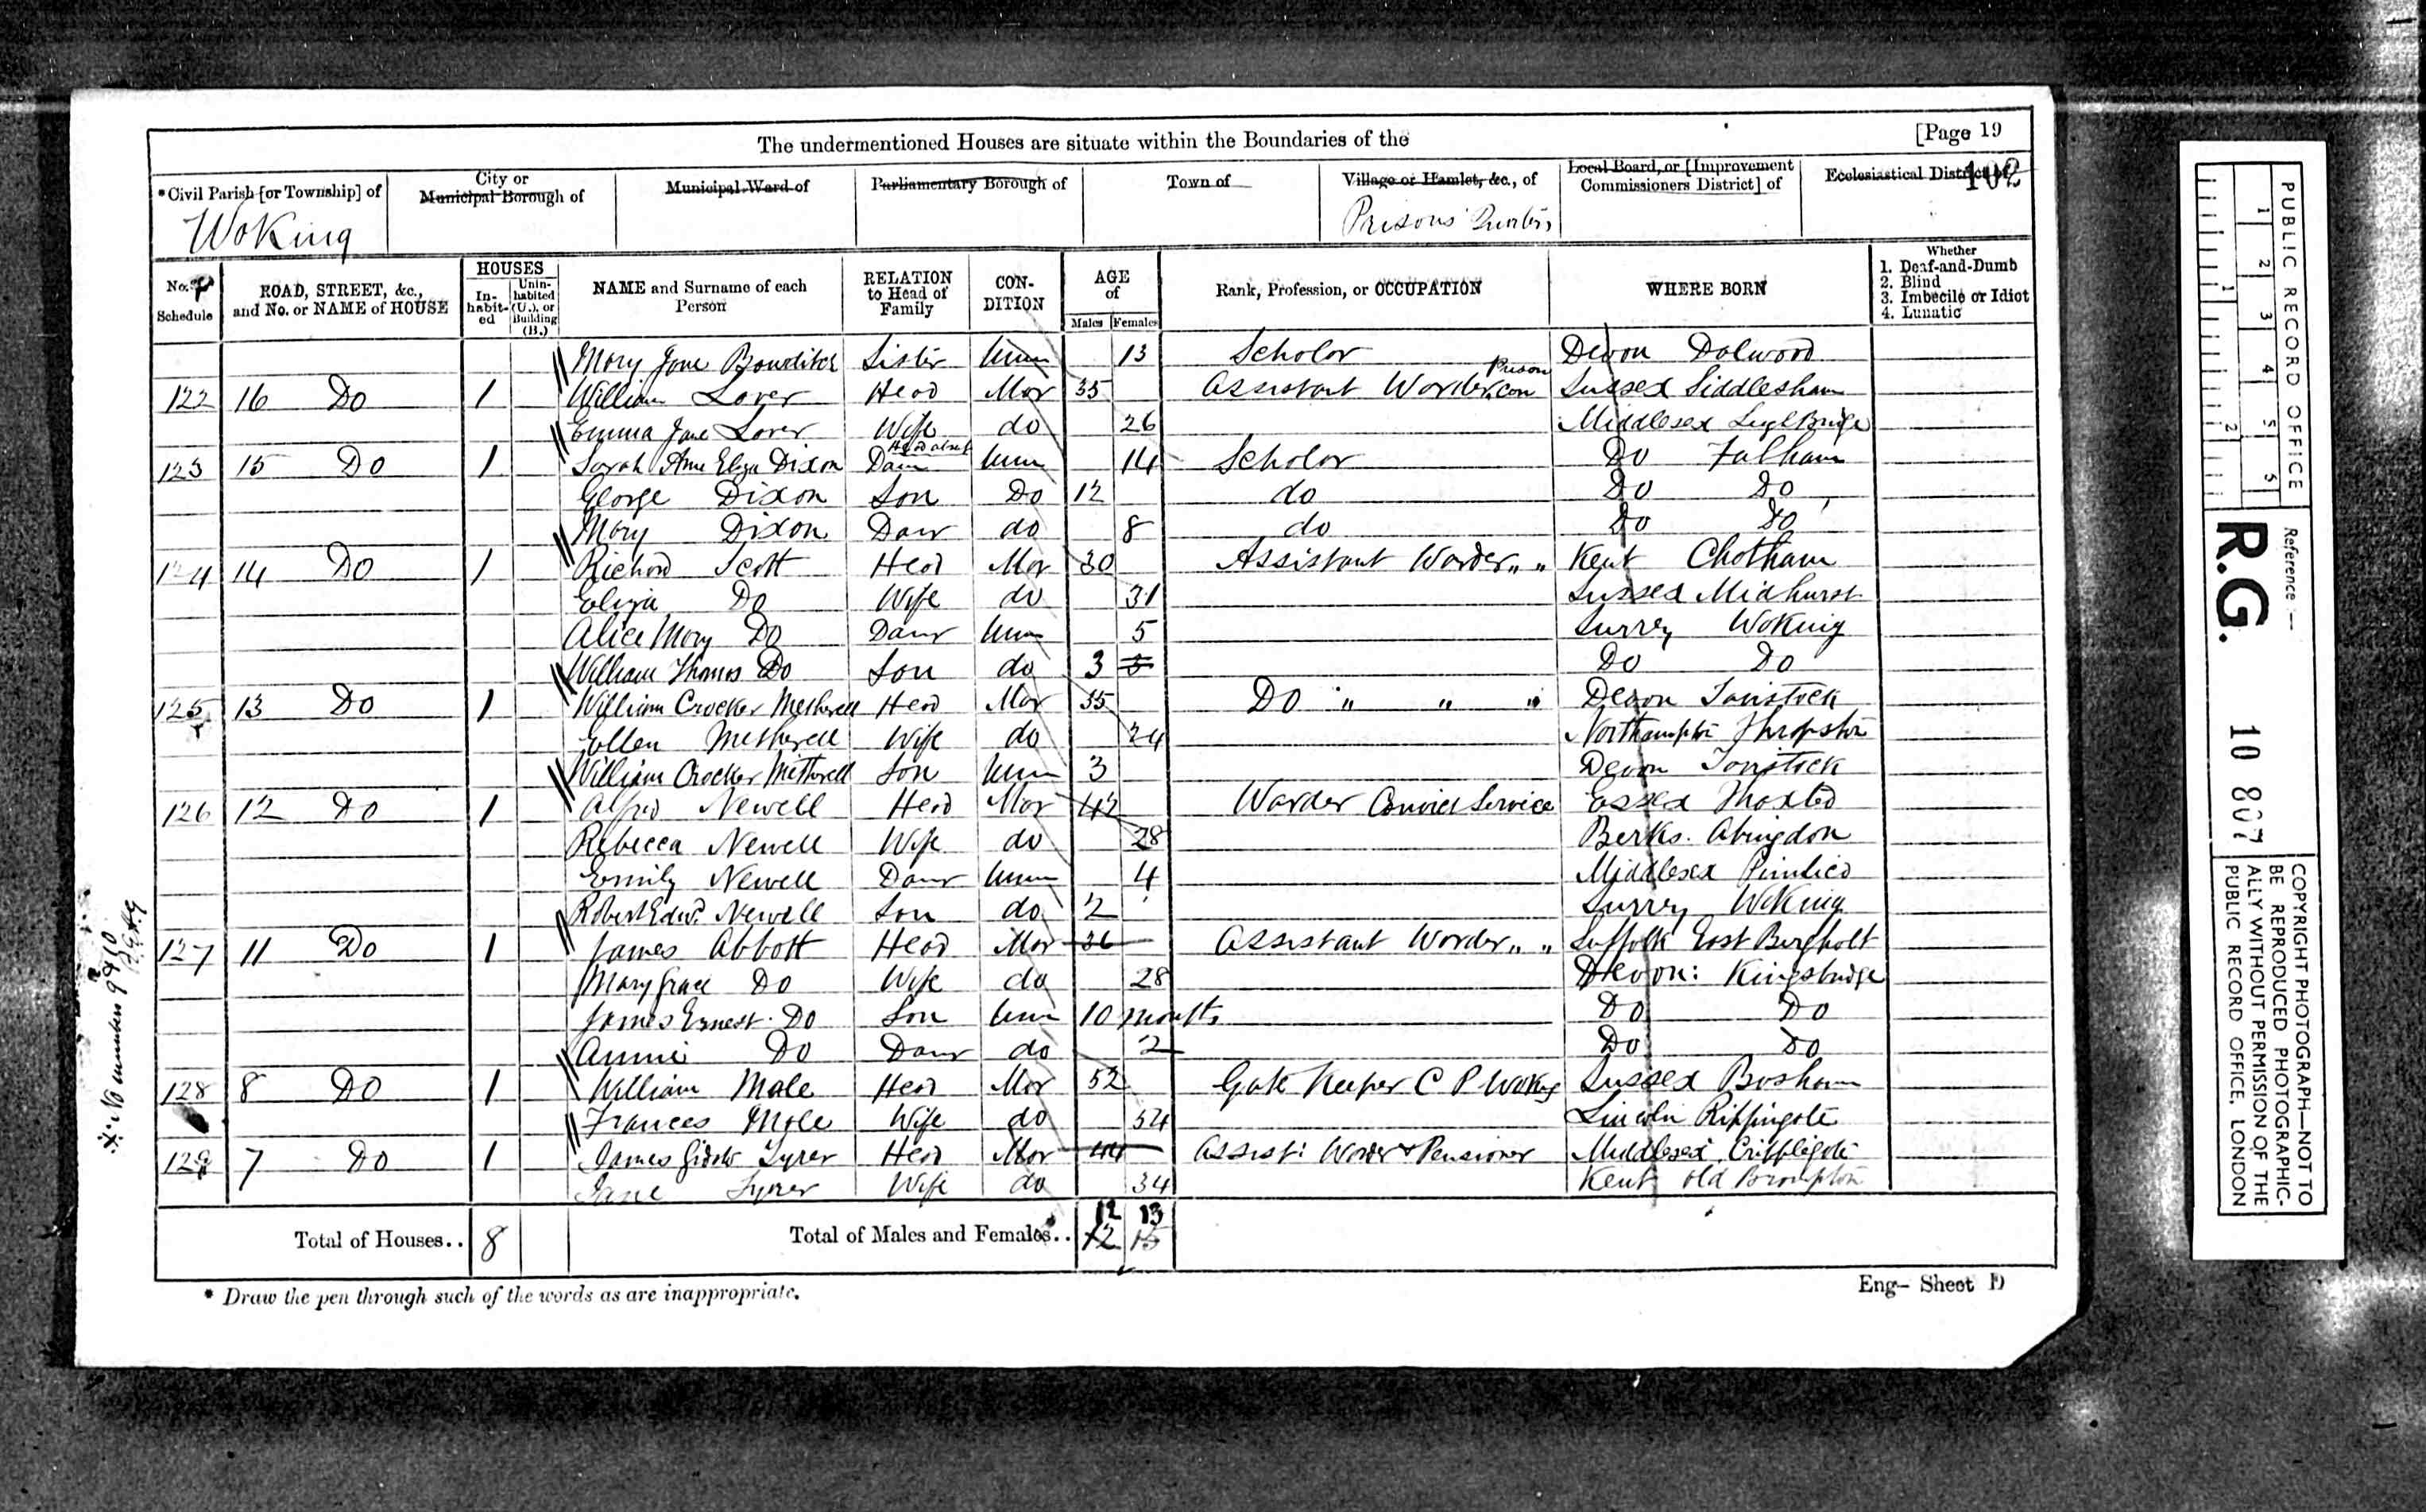 The undermentioned Houses are situate within the Boundaries of the [Page 19
*Civil Parish [or Township] of
City or Municipal Borough of
Municipal Ward of
Parliamentary Borough of
Town of
Village or Hamlet, &c., of
Local Board, or [Improvement Commissioners District] of
Ecclesiastical District of
102
Woking
Prisons
No. of Schedule
ROAD, STREET, &c., and No. or NAME of HOUSE
HOUSES
Inhabited
Uninhabited (U.), or Building (B.)
NAME and Surname of each Person
RELATION to Head of Family
CONDITION
AGE of
Males Females
Rank, Profession, or OCCUPATION
WHERE BORN
Whether
1. Deaf-and-Dumb
2. Blind
3. Imbecile or Idiot
4. Lunatic
Mary Jane Bowditch Sister Unm 13 Scholar Devon Dalwood
122 16 Do 1 William Lover Head Mar 35 Assistant Warder Con Prison Sussex Siddlesham
Emma Jane Lover Wife do 26 Middlesex
Head absent
123 15 Do 1 Sarah Ann Eliza Dixon Daur Unm 14 Scholar Do Fulham
George Dixon Son Do 12 do Do Do
Mary Dixon Daur do 8 do Do Do
124 14 Do 1 Richard Scott Head Mar 30 Assistant Warder " " Kent Chatham
Eliza Do Wife do 31 Sussex Midhurst
Alice Mary Do Daur Unm 5 Surrey Woking
William Thomas Do Son do 3 Do Do
125 13 Do 1 William Crocker Metherell Head Mar 35 Do " " " Devon Tavistock
Ellen Metherell Wife do 24 Northampton Thrapston
William Crocker Metherell Son Unm 3 Devon Tavistock
126 12 Do 1 Alfred Newell Head Mar 42 Warder Convict Service Essex Thaxted
Rebecca Newell Wife do 28 Berks. Abingdon
Emily Newell Daur Unm 4 Middlesex Pimlico
Robert Edwd Newell Son do 2 Surrey Woking
127 11 Do 1 James Abbott Head Mar 36 Assistant Warder " " Suffolk East Bergholt
Mary Grace Do Wife do 28 Devon: Kingsbridge
James Ernest Do Son Unm 10 months Do Do
Annie Do Daur do 2 Do Do
128 8 Do 1 William Mole Head Mar 52 Gate Keeper C P Woking Sussex Bosham
Frances Mole Wife do 54 Lincoln Rippingale
129 7 Do 1 James Tyrer Head Mar 44 Assist: Warder & Pensioner Middlesex Cripplegate
Jane Tyrer Wife do 34 Kent Old Brompton
12 13
Total of Houses.. 8 Total of Males and Females.. 12 15
* Draw the pen through such of the words as are inappropriate.
Eng- Sheet D
No numbers 9 & 10
PUBLIC RECORD OFFICE
1 2 3 4 5 6
1 2
Reference :—
R.G. 10 807
COPYRIGHT PHOTOGRAPH—NOT TO
BE REPRODUCED PHOTOGRAPHIC-
ALLY WITHOUT PERMISSION OF THE
PUBLIC RECORD OFFICE, LONDON